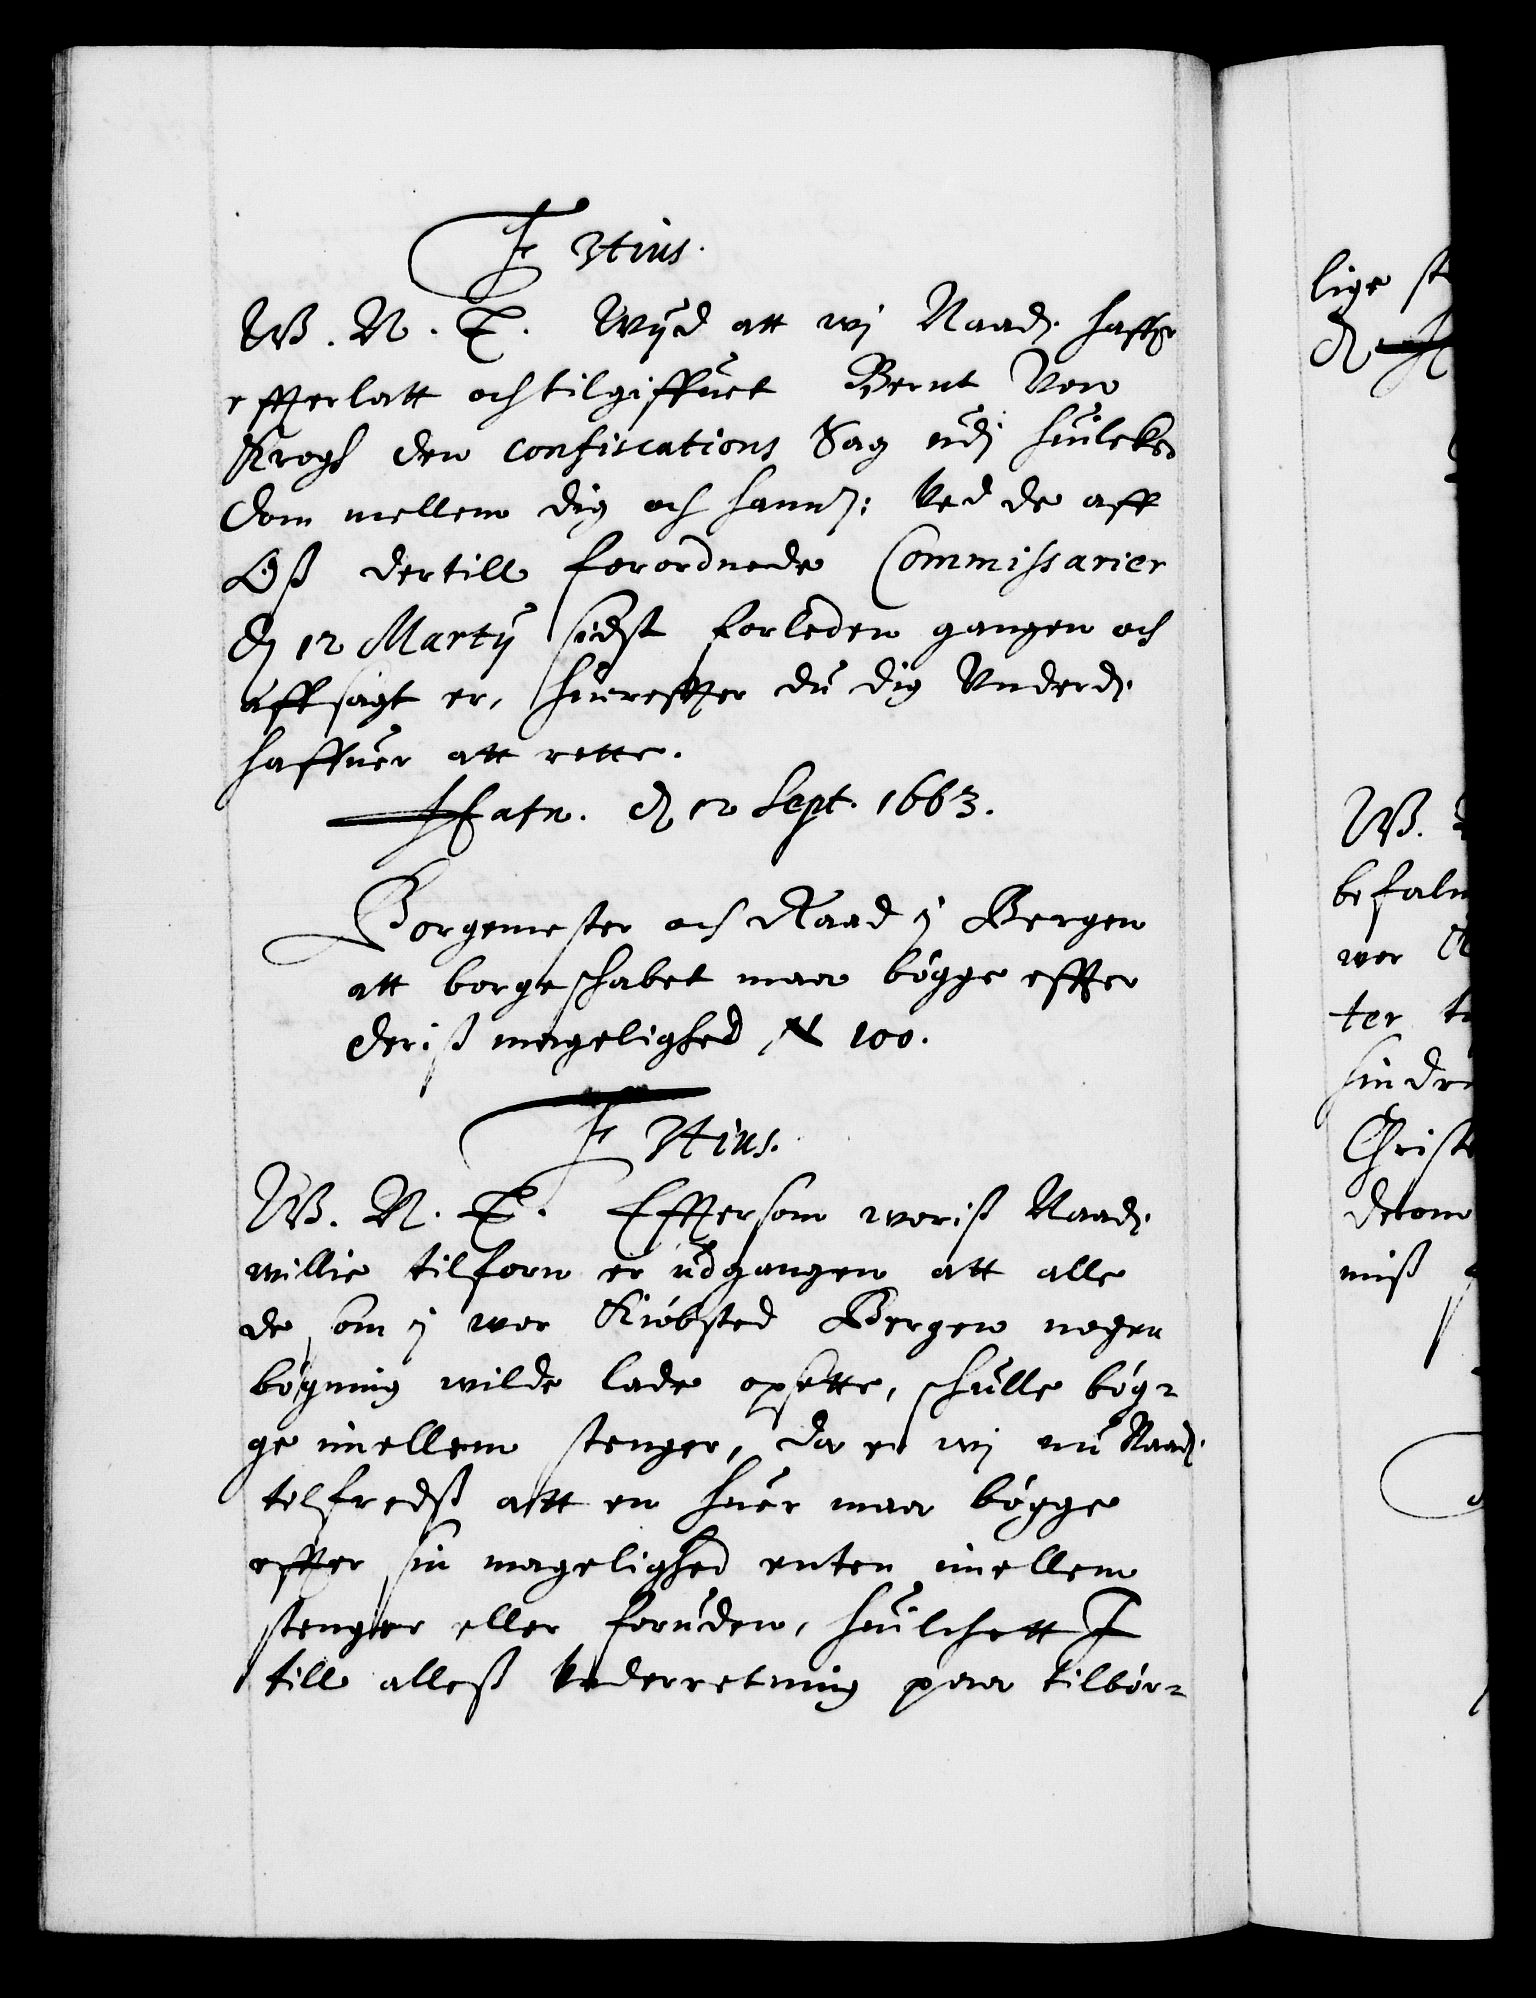 F 3tius.
W. N. T. Wijd att wj Naadj. haffr
effterlatt och tilgiffuet Bernt Von
Krogh den confiscations Sag udj huilcken
dom mellem dig och hannem: Ved de aff
Oß dertill forordnede Commissarier
dj 12 Martij sidst forleden gangen och
affsagt er, huoreffter du dig Underdj.
haffuer att rette.
Hafn. dj 12 Sept. 1663.
Borgemester och Raad j Bergen
att borgeschabet maa bögge effter
deriß magelighed N 100.
F 3tius.
W. N. T. Efftersom woriß Naadj.
willie tilforn er udgangen att alle
de som j wor Kiöbsted Bergen nogen
bögning wilde lade opsette, schulle bög-
ge imellem stenger, da er wj nu Naadj.
tilfredß att en huer maa bögge
effter sin magelighed enten imellem
stenger eller foruden, huilchett I
till alleß Underretning paa tilbör-
lige st
dj
W.
befaln
wor
ter
hindre
Christ
derom
miß